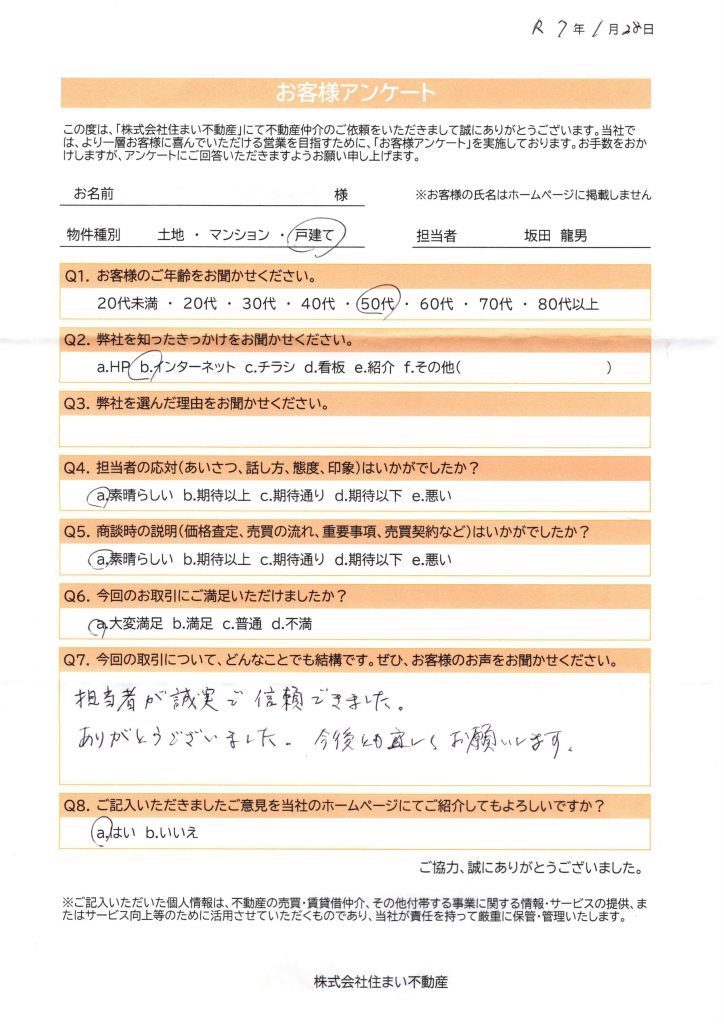 R7年1月28日
お客様アンケート
この度は、「株式会社住まい不動産」にて不動産仲介のご依頼をいただきまして誠にありがとうございます。当社で
は、より一層お客様に喜んでいただける営業を目指すために、「お客様アンケート」を実施しております。お手数をおか
けしますが、アンケートにご回答いただきますようお願い申し上げます。
お名前 様 ※お客様の氏名はホームページに掲載しません
物件種別 土地 ・ マンション ・ 戸建て 担当者 坂田 龍男
Q1. お客様のご年齢をお聞かせください。
20代未満 ・ 20代 ・ 30代 ・ 40代 ・ 50代 ・ 60代 ・ 70代 ・ 80代以上
Q2. 弊社を知ったきっかけをお聞かせください。
a.HP b.インターネット c.チラシ d.看板 e.紹介 f.その他( )
Q3. 弊社を選んだ理由をお聞かせください。
Q4. 担当者の応対(あいさつ、話し方、態度、印象)はいかがでしたか?
a.素晴らしい b.期待以上 c.期待通り d.期待以下 e.悪い
Q5. 商談時の説明(価格査定、売買の流れ、重要事項、売買契約など)はいかがでしたか?
a.素晴らしい b.期待以上 c.期待通り d.期待以下 e.悪い
Q6. 今回のお取引にご満足いただけましたか?
a.大変満足 b.満足 c.普通 d.不満
Q7. 今回の取引について、どんなことでも結構です。ぜひ、お客様のお声をお聞かせください。
担当者が誠実で信頼できました。
ありがとうございました。今後とも宜しくお願いします。
Q8. ご記入いただきましたご意見を当社のホームページにてご紹介してもよろしいですか?
a.はい b.いいえ
ご協力、誠にありがとうございました。
※ご記入いただいた個人情報は、不動産の売買・賃貸借仲介、その他付帯する事業に関する情報・サービスの提供、ま
たはサービス向上等のために活用させていただくものであり、当社が責任を持って厳重に保管・管理いたします。
株式会社住まい不動産